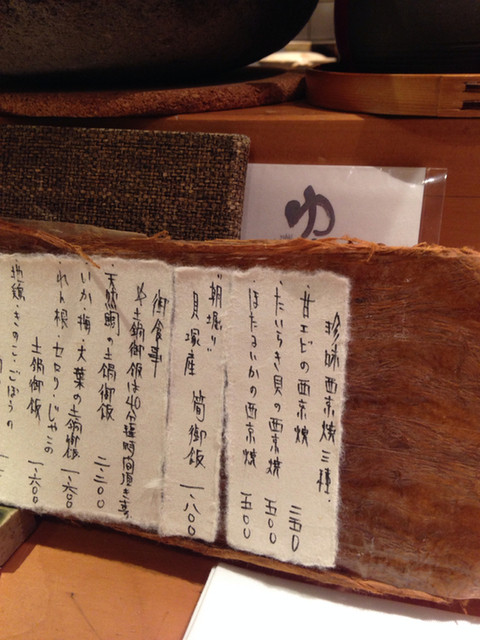 ゆ
珍味西京焼三種.
・甘エビの西京焼 三五〇
・たいらぎ貝の西京焼 五〇〇
・ほたるいかの西京焼 五〇〇
"朝堀り"
貝塚産 筍御飯 一、八〇〇
御食事
・天然鯛の土鍋御飯 二、二〇〇
・いか・梅・大葉の土鍋御飯 一、六〇〇
・れん根・セロリ・じゃこの
土鍋御飯 一、六〇〇
・地鶏・きのこ・ごぼうの